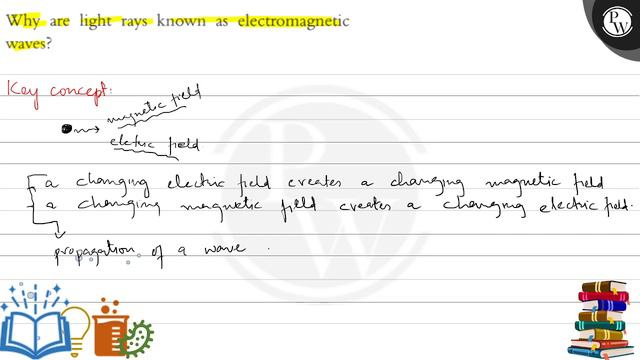 Why are light rays known as electromagnetic
waves?
PW
Key concept:
magnetic field
electric field
a changing electric field creates a changing magnetic field
a changing magnetic field creates a changing electric field.
propagation of a wave.